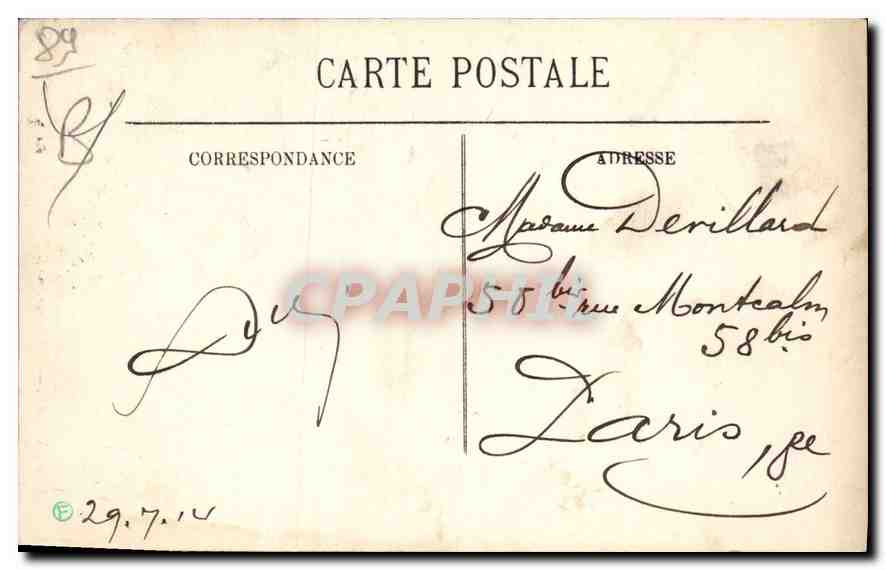 89
CARTE POSTALE
CORRESPONDANCE
ADRESSE
Madame Devillard
58 bis rue Montcalm
58 bis
Paris 18e
CPAPHIL
E 29.7.14